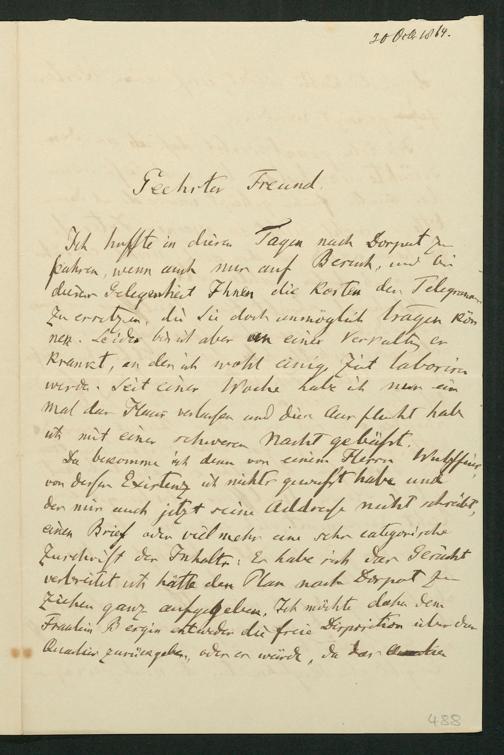 20 Oct. 1864.
Geehrter Freund.
Ich hoffte in diesen Tagen nach Dorpat zu
fahren, wenn auch nur auf Besuch, und bei
dieser Gelegenheit Ihnen die Kosten des Telegramms
zu ersetzen, die Sie doch unmöglich tragen kön
nen. Leider bin ich aber an einer er
krankt, an der ich wohl einige Zeit laboriren
werde. Seit einer Woche habe ich nur ein
mal das Haus verlassen und diese Ausflucht habe
ich mit einer schweren Nacht gebüßt.
Da bekomme ich denn von einem Herrn Wulffius,
von dessen Existenz ich nichts gewußt habe und
der mir auch jetzt seine Addresse nicht schreibt,
einen Brief oder vielmehr eine sehr categorische
Zuschrift des Inhalts: Es habe sich das Gerücht
verbreitet ich hätte den Plan nach Dorpat zu
ziehen ganz aufgegeben. Ich möchte daher dem
Fräulein Bergin entweder die freie Disposition über das
Quartier zurückgeben, oder er würde, da das
488